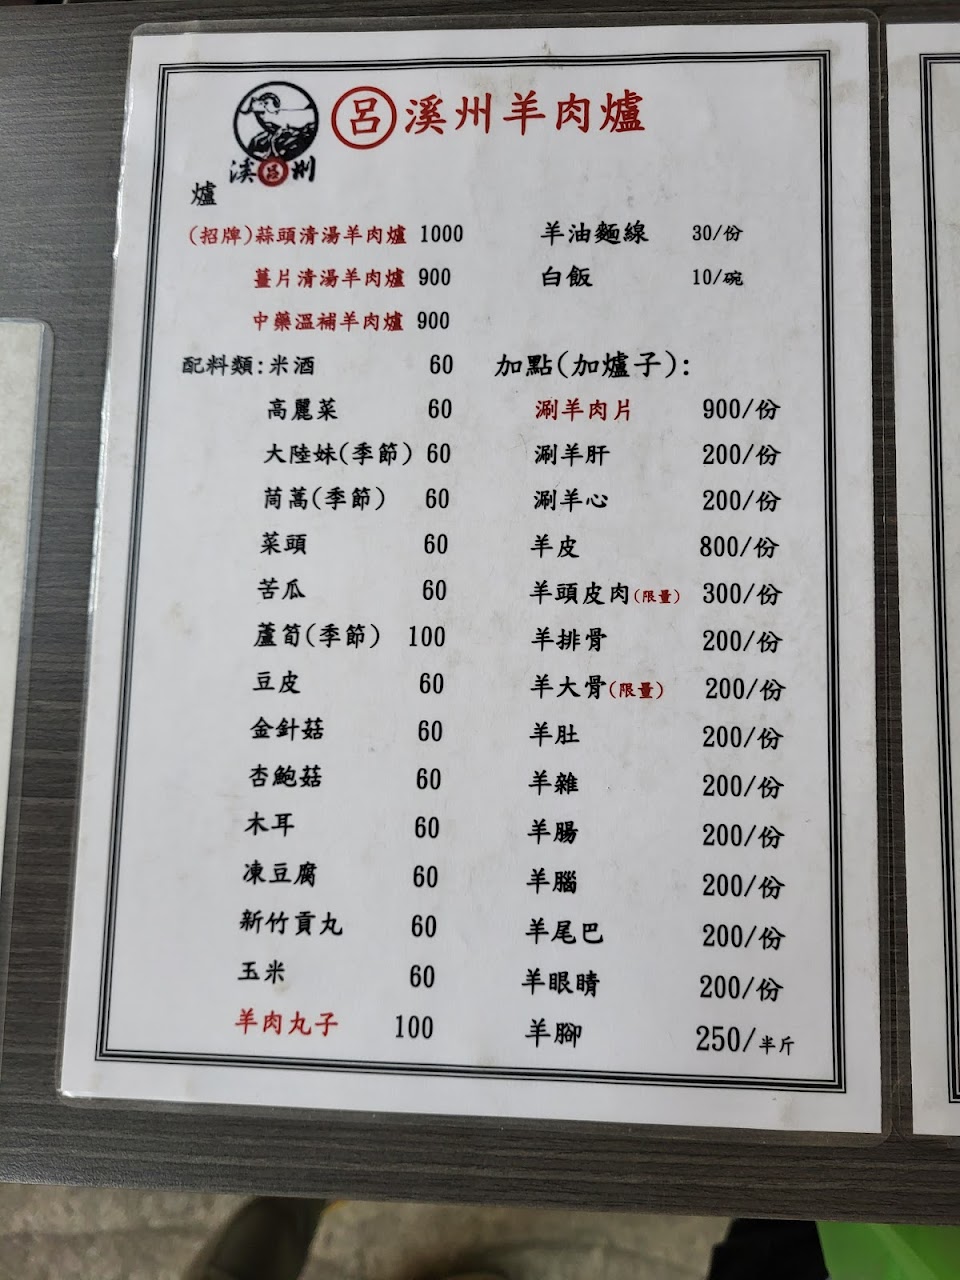 呂溪州羊肉爐
溪呂州
爐
(招牌)蒜頭清湯羊肉爐 1000
薑片清湯羊肉爐 900
中藥溫補羊肉爐 900
羊油麵線 30/份
白飯 10/碗
配料類:米酒 60
高麗菜 60
大陸妹(季節) 60
茼蒿(季節) 60
菜頭 60
苦瓜 60
蘆筍(季節) 100
豆皮 60
金針菇 60
杏鮑菇 60
木耳 60
凍豆腐 60
新竹貢丸 60
玉米 60
羊肉丸子 100
加點(加爐子):
涮羊肉片 900/份
涮羊肝 200/份
涮羊心 200/份
羊皮 800/份
羊頭皮肉(限量) 300/份
羊排骨 200/份
羊大骨(限量) 200/份
羊肚 200/份
羊雜 200/份
羊腸 200/份
羊腦 200/份
羊尾巴 200/份
羊眼睛 200/份
羊腳 250/半斤